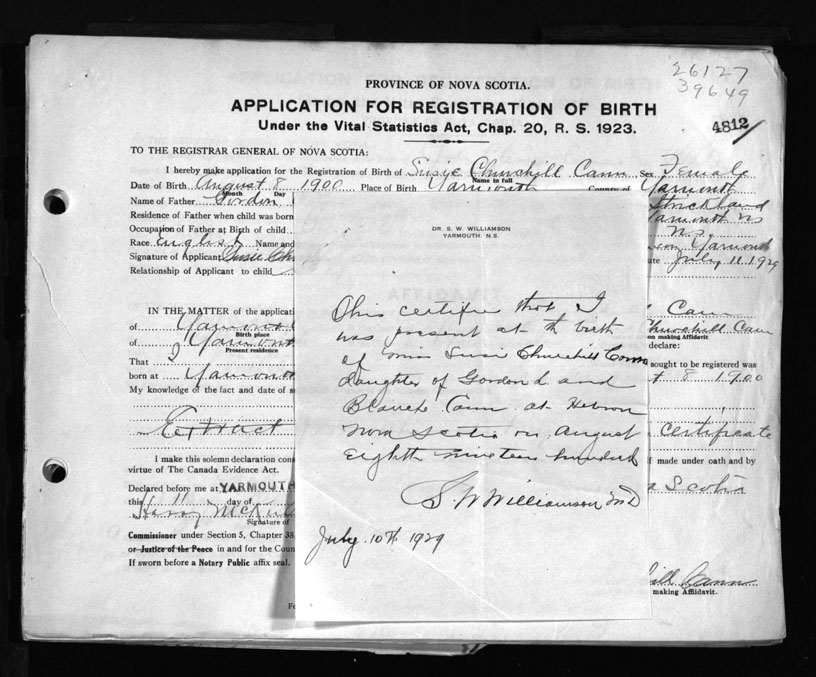 26127
39649
PROVINCE OF NOVA SCOTIA.
APPLICATION FOR REGISTRATION OF BIRTH
4812
Under the Vital Statistics Act, Chap. 20, R. S. 1923.
TO THE REGISTRAR GENERAL OF NOVA SCOTIA:
I hereby make application for the Registration of Birth of Susie Churchill Cann Sex Female
Name in full
Date of Birth August 8 1900 Place of Birth Yarmouth County of Yarmouth
Month Day
Name of Father Gordon Strickland
Residence of Father when child was born Yarmouth NS
Occupation of Father at Birth of child N.S.
Race English Name and Yarmouth
Signature of Applicant Susie Ch July 11 1929
Relationship of Applicant to child
IN THE MATTER of the applicati Cann
of Yarmouth Churchill Cann
Birth place on making Affidavit
of Yarmouth declare:
Present residence
That I sought to be registered was
born at Yarmouth 8 1900
My knowledge of the fact and date of s
Extract Certificate
I make this solemn declaration cons if made under oath and by
virtue of The Canada Evidence Act.
Declared before me at YARMOUTH a Scotia
this 11 day of
Harry McK
Signature of
Commissioner under Section 5, Chapter 38,
or Justice of the Peace in and for the Coun
If sworn before a Notary Public affix seal.
ill Cann
making Affidavit.
Fo
DR. S. W. WILLIAMSON
YARMOUTH, N.S.
This certifies that I
was present at the birth
of Miss Susie Churchill Cann
daughter of Gordon L and
Blanche Cann at Hebron
Nova Scotia on August
eighth nineteen hundred
S. W Williamson MD
July 10th 1929